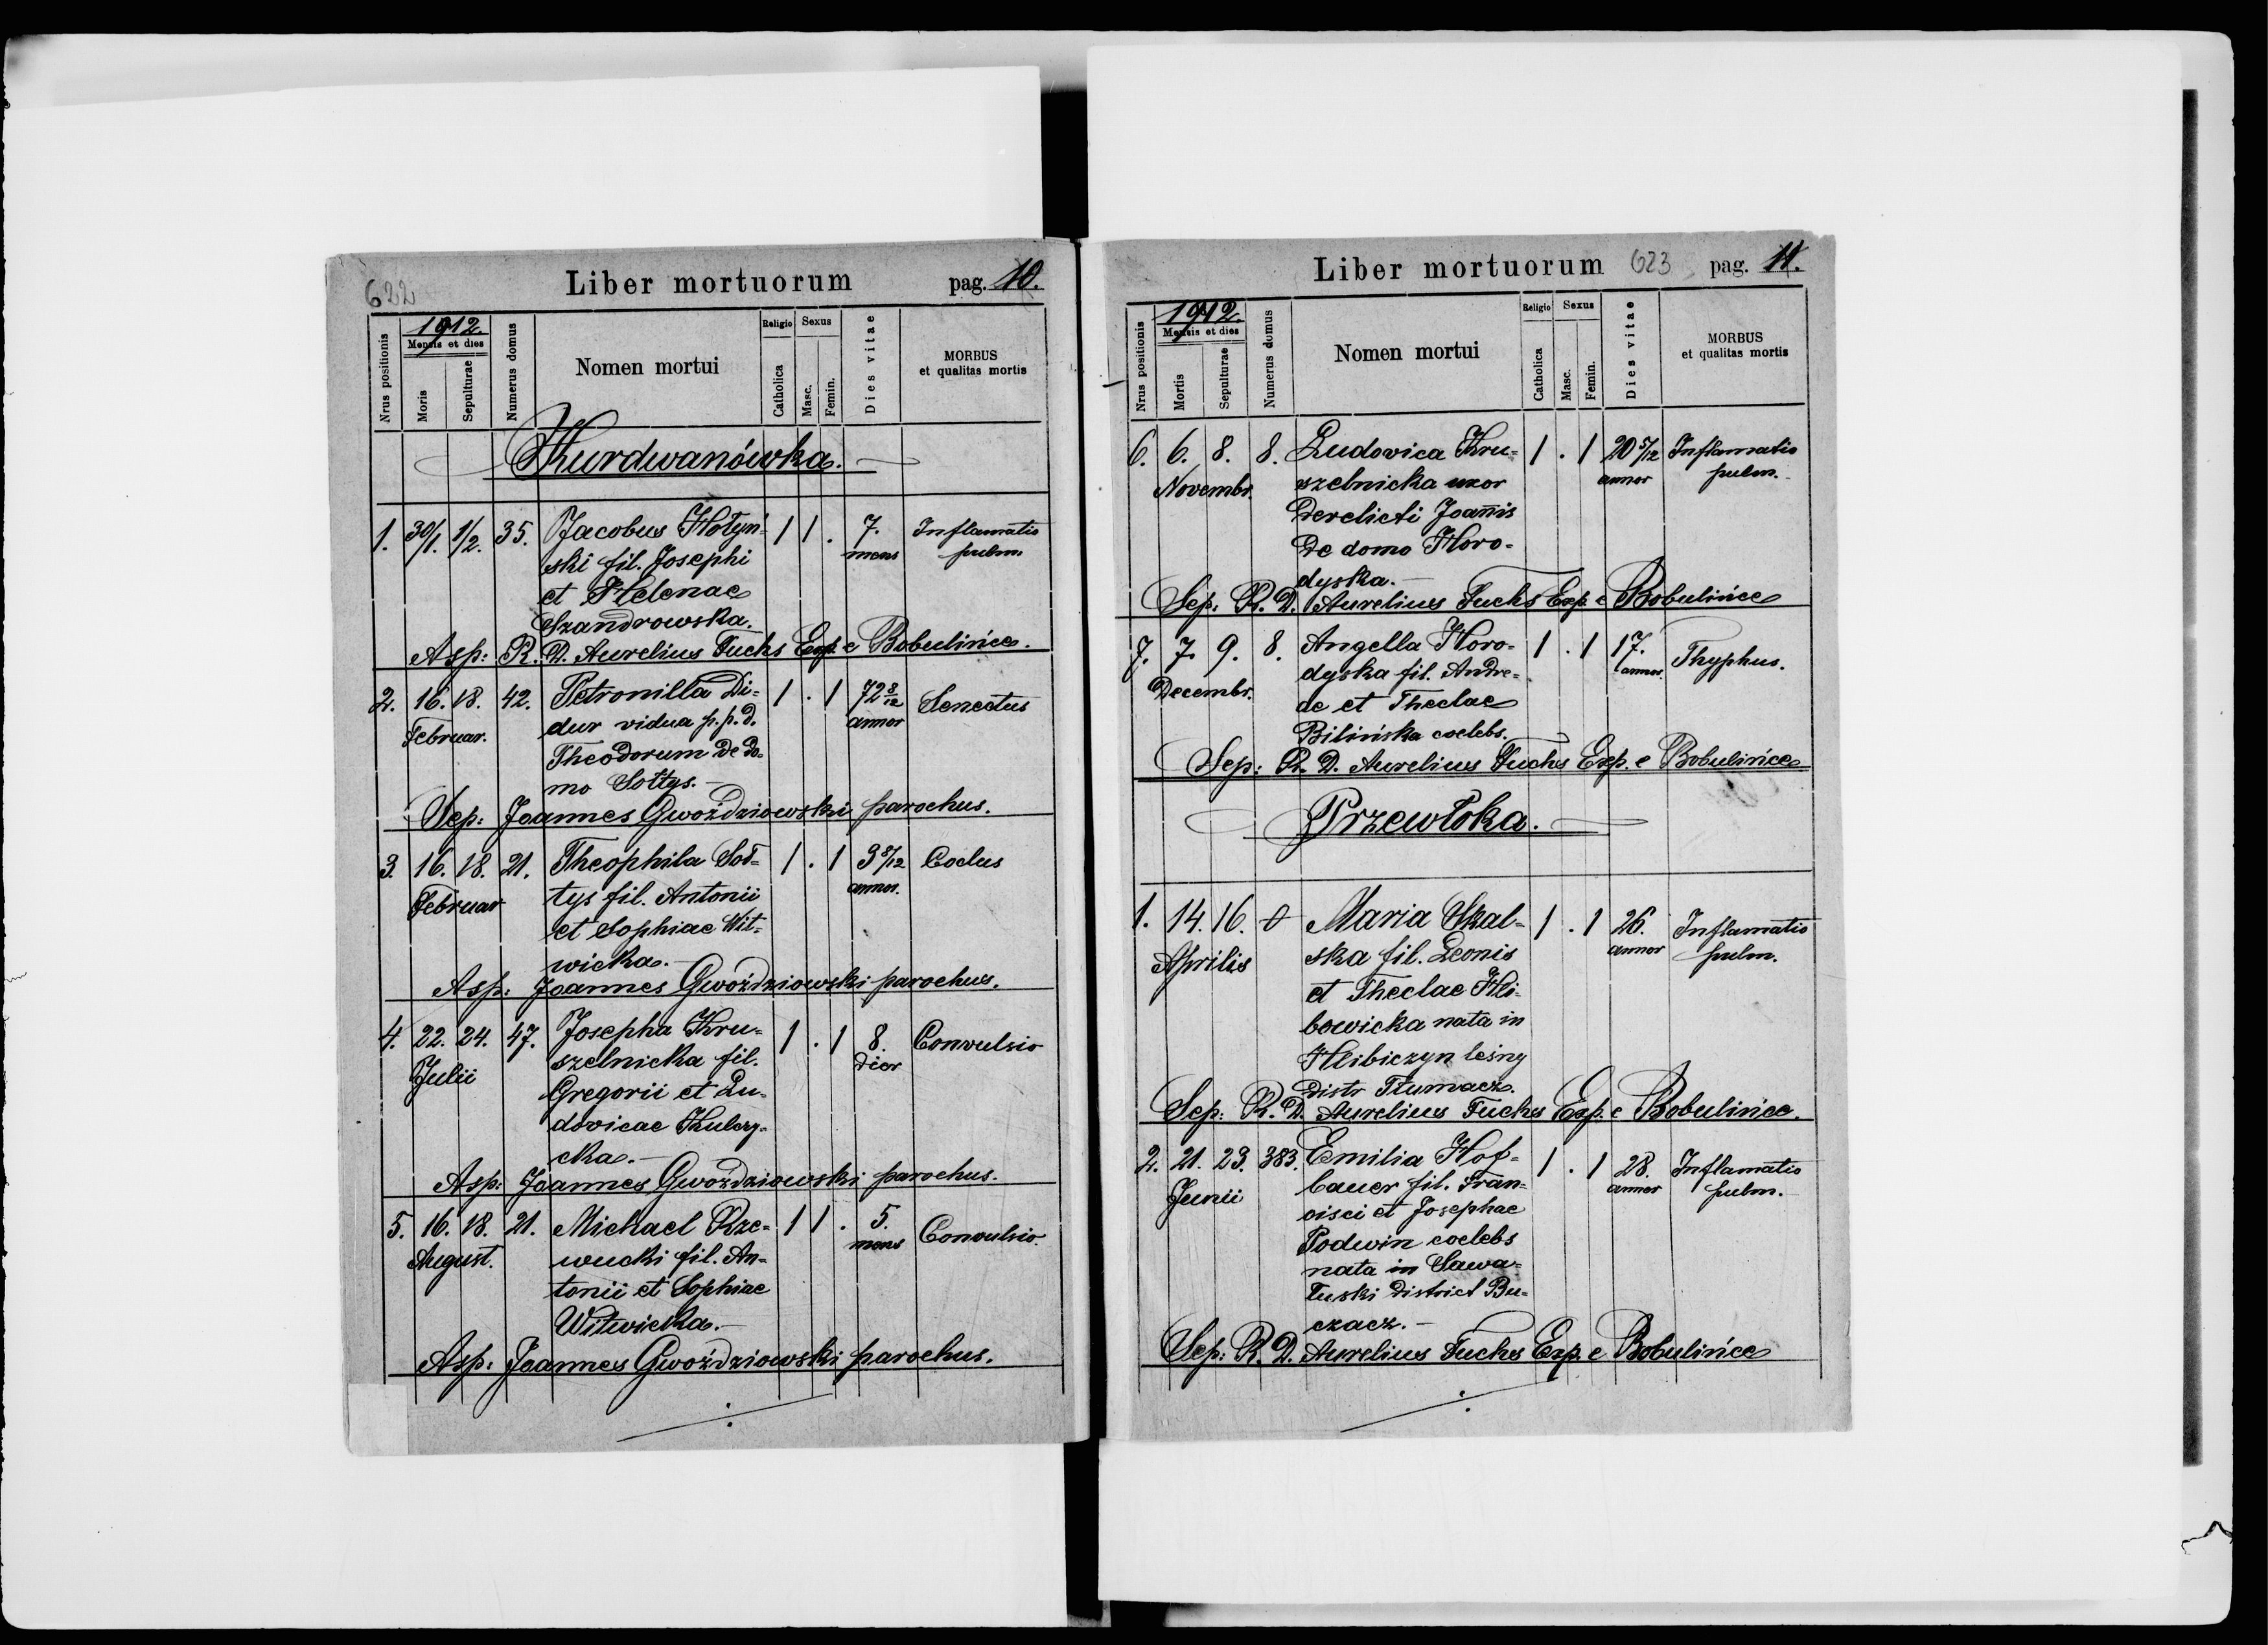 622
Liber mortuorum pag. 10.
Nrus positionis
1912.
Mensis et dies
Moris
Sepulturae
Numerus domus
Nomen mortui
Religio
Catholica
Sexus
Masc.
Femin.
Dies vitae
MORBUS
et qualitas mortis
Kurdwanówka.
1. 30/1. 1/2. 35. Jacobus Hołyń- 1 1 . 7. Inflamatio
ski fil. Josephi mens pulm.
et Helenae
Szandrowska.
Asp: R. D. Aurelius Fuchs Exp. e Bobulińce.
2. 16. 18. 42. Petronilla Di- 1 . 1 72 8/12 Senectus
Februar. dur vidua p. p. d. annor
Theodorum de do-
mo Sołtys.-
Sep: Joannes Gwoździowski parochus.
3. 16. 18. 21. Theophila Soł- 1 . 1 3 5/12 Coclus
Februar tys fil. Antonii annor.
et Sophiae Wit-
wicka.-
Asp: Joannes Gwoździowski parochus.
4. 22. 24. 47. Josepha Kru- 1 . 1 8. Convulsio
Julii szelnicka fil. dier
Gregorii et Lu-
dovicae Kulczy-
cka.-
Asp: Joannes Gwoździowski parochus.
5. 16. 18. 21. Michael Rze- 1 1 . 5. Convulsio.
August. wucki fil. An- mens
tonii et Sophiae
Witwicka.-
Asp: Joannes Gwoździowski parochus.
Liber mortuorum 623 pag. 11.
Nrus positionis
1912.
Mensis et dies
Mortis
Sepulturae
Numerus domus
Nomen mortui
Religio
Catholica
Sexus
Masc.
Femin.
Dies vitae
MORBUS
et qualitas mortis
6. 6. 8. 8. Ludovica Kru- 1 . 1 20 5/12 Inflamatio
Novembr. szelnicka uxor annor pulm.-
derelicti Joannis
de domo Horo-
dyska.-
Sep: R. D. Aurelius Fuchs Exp. e Bobulińce
7. 7. 9. 8. Angella Horo- 1 . 1 17. Thyphus.
Decembr. dyska fil. Andre- annor.
ae et Theclae
Bilińska coelebs.
Sep: R. D. Aurelius Fuchs Exp. e Bobulińce
Przewłoka.
1. 14. 16. 0 Maria Skal- 1 . 1 26. Inflamatio
Aprilis ska fil. Leonis annor pulm.
et Theclae Hli-
bowicka nata in
Hlibiczyn leśny
distr Tłumacz.
Sep: R. D. Aurelius Fuchs Exp. e Bobulińce.
2. 21. 23. 383. Emilia Hof- 1 . 1 28. Inflamatio
Junii bauer fil. Fran- annor pulm.-
cisci et Josephae
Podwin coelebs
nata in Sawa-
łuski district Bu-
czacz.-
Sep: R. D. Aurelius Fuchs Exp. e Bobulińce